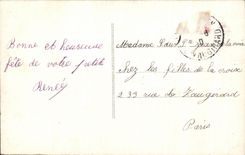 Bonne et heureuse
fête de votre petite
Renée
Madame Paul
chez les filles de la croix
233 rue de Vaugirard
Paris